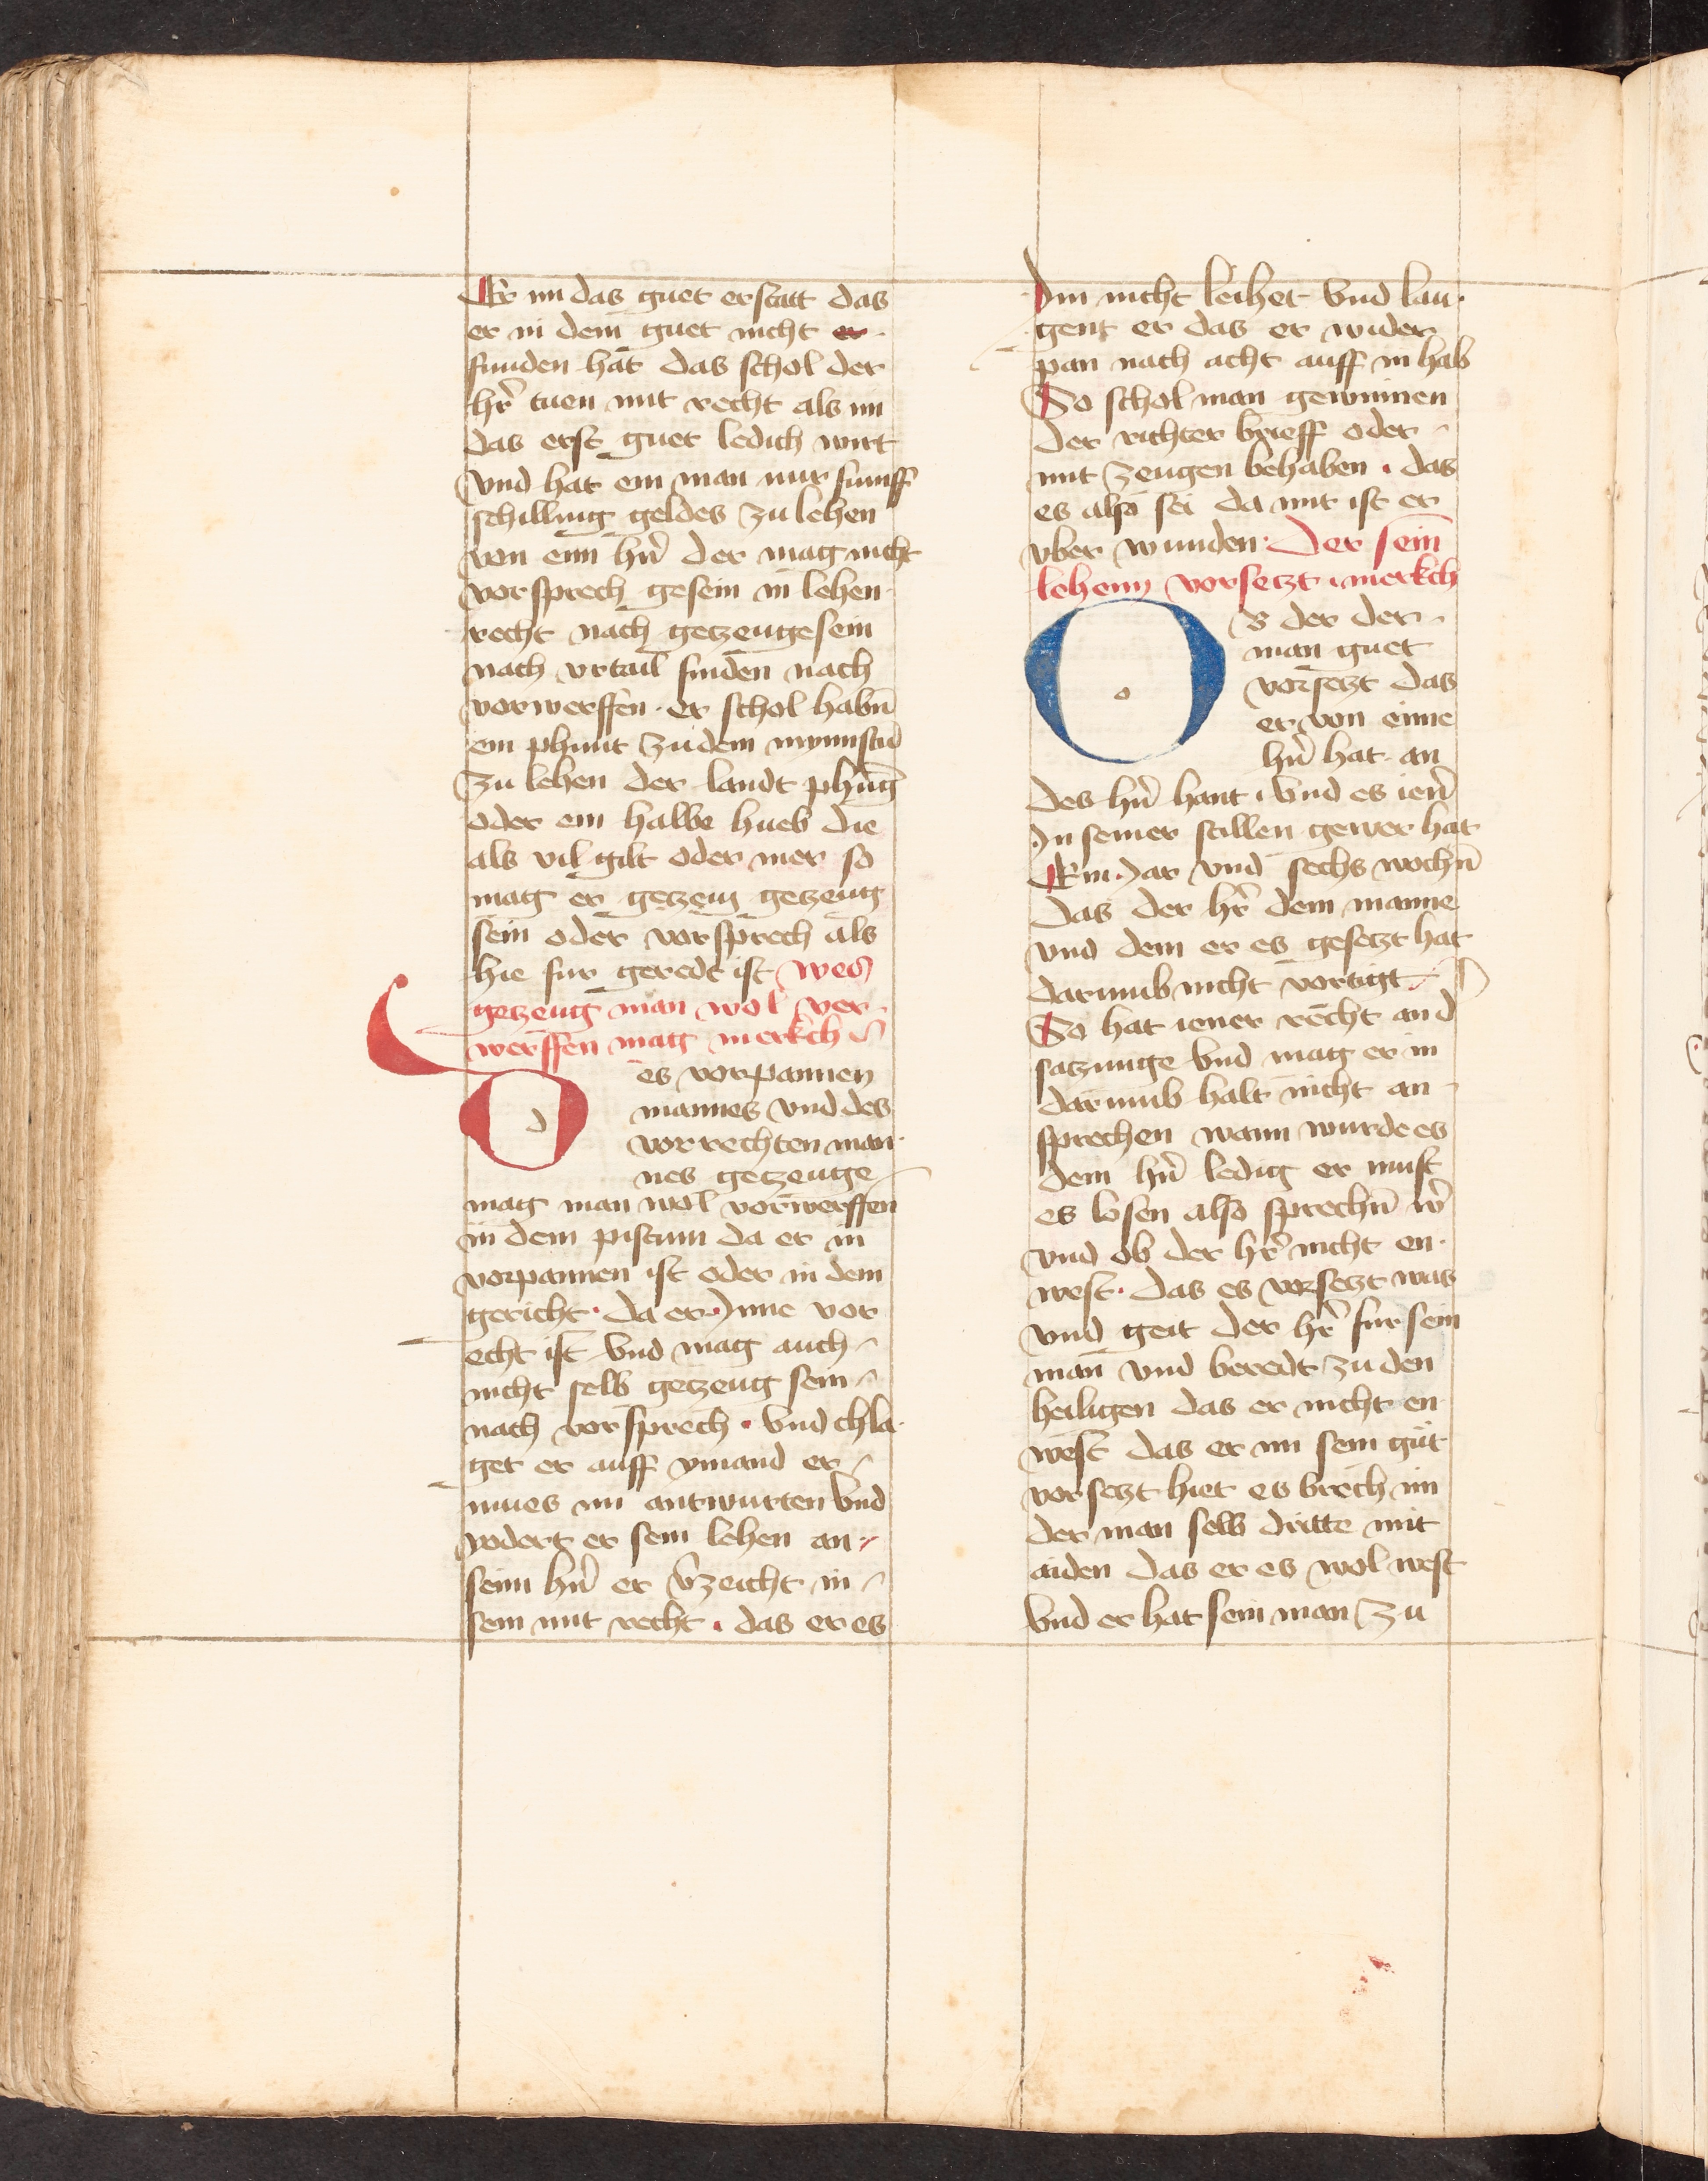 Er im das guet erstatt das
er in dem guet nicht er
funden hat das schol der
hr̄ tuen mit recht als im
das erst guet ledich wirt
Vnd hat ein man nur fumff
schilling geldes zu lehen
von eim hr̄n der mag nicht
vorsprech gesein in lehen
recht nach getzeuge sein
nach vrtail finden nach
vorwerffen · er schol habn̄
ein phunt zu dem mynnstn̄
zu lehen der landt phūg
oder ein halbe hueb die
als vil gilt oder mer so
mag er getzeug getzeug
sein oder vorsprech als
hie fur geredt ist wes
getzeug man wol ver
werffen mag merkch
Des vorpannen
mannes vnd des
vorrechten man
nes getzeuge
mag man wol vorwerffen
in dem pistum da er in
vorpannen ist oder in dem
gericht · da er · Inne vor
echt ist Vnd mag auch
nicht selb getzeug sein
nach vorsprech · Vnd chla
get er auff ymand er
mues im antwurten Vnd
vodert er sein lehen an
seim hr̄n er v̄zeicht in
sein mit recht · das er es
Im nicht leihet Vnd lau
gent er das er wider
pan nach acht auff in hab
So schol man gewinnen
der richter brieff oder
mit zeugen behaben · das
es also sei da mit ist er
vber wunden · Der sein
lehenn vorsetzt · merkch
Ob der der
man guet
vorsetzt das
er von einne
hr̄n hat an
des hr̄n hant · Vnd es ien̄
In seiner stillen gewer hat
Ein · Jar vnd sechs wochn̄
das der hr̄ dem manne
vnd dem er es gesetzt hat
darumb nicht vortigt
So hat iener recht an d
satzunge Vnd mag er in
darumb halt nicht an
sprechen wann wurde es
dem hr̄n ledig er must
es losen also sprechn̄ w̄
vnd ob der hr̄ nicht en
west · das es vorsetzt was
vnd geit der hr̄ fur sein
man vnd beredt zu den
heiligen das er nicht en
west das er im sein gut
vorsetzt hiet es brech im
der man selb dritte mit
aiden das er es wol west
Vnd er hat sein man zu